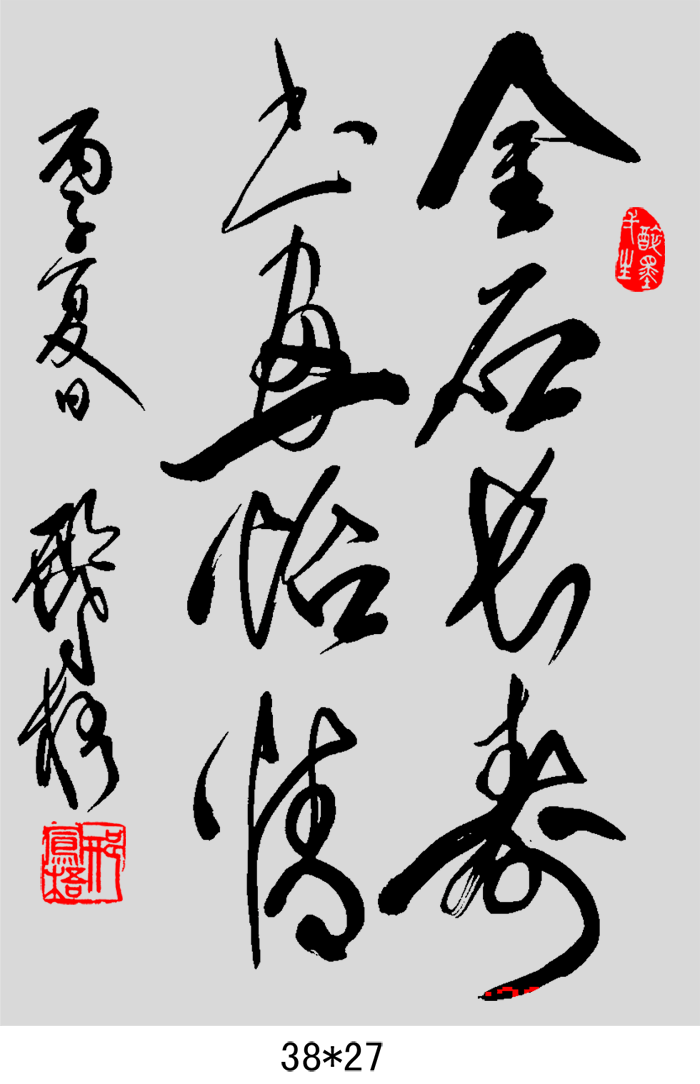 金石长寿
书画怡情
丙子夏日
醉墨
38*27